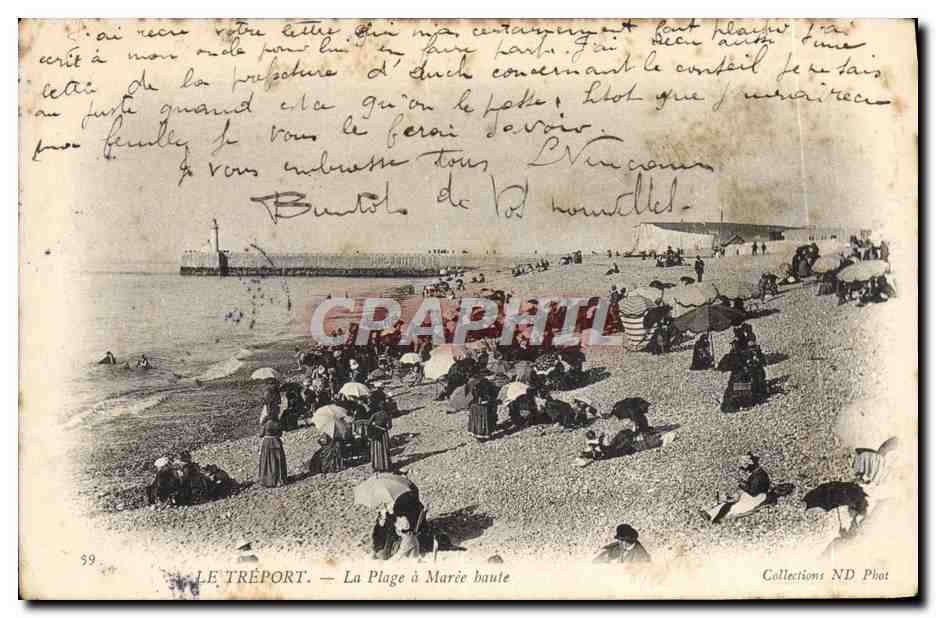 J'ai reçu votre lettre qui m'as certainement fait plaisir j'ai
écrit à mon oncle pour lui en faire part. J'ai reçu aussi une
lettre de la préfecture d'Auch concernant le conseil je ne sais
au juste quand est ce qu'on le passe, sitot que j'aurai recu
ma feuille je vous le ferai savoir.
Je vous embrasse tous
Bientot de vos nouvelles.
CARTAPHIL
59 LE TRÉPORT. — La Plage à Marée haute
Collections ND Phot